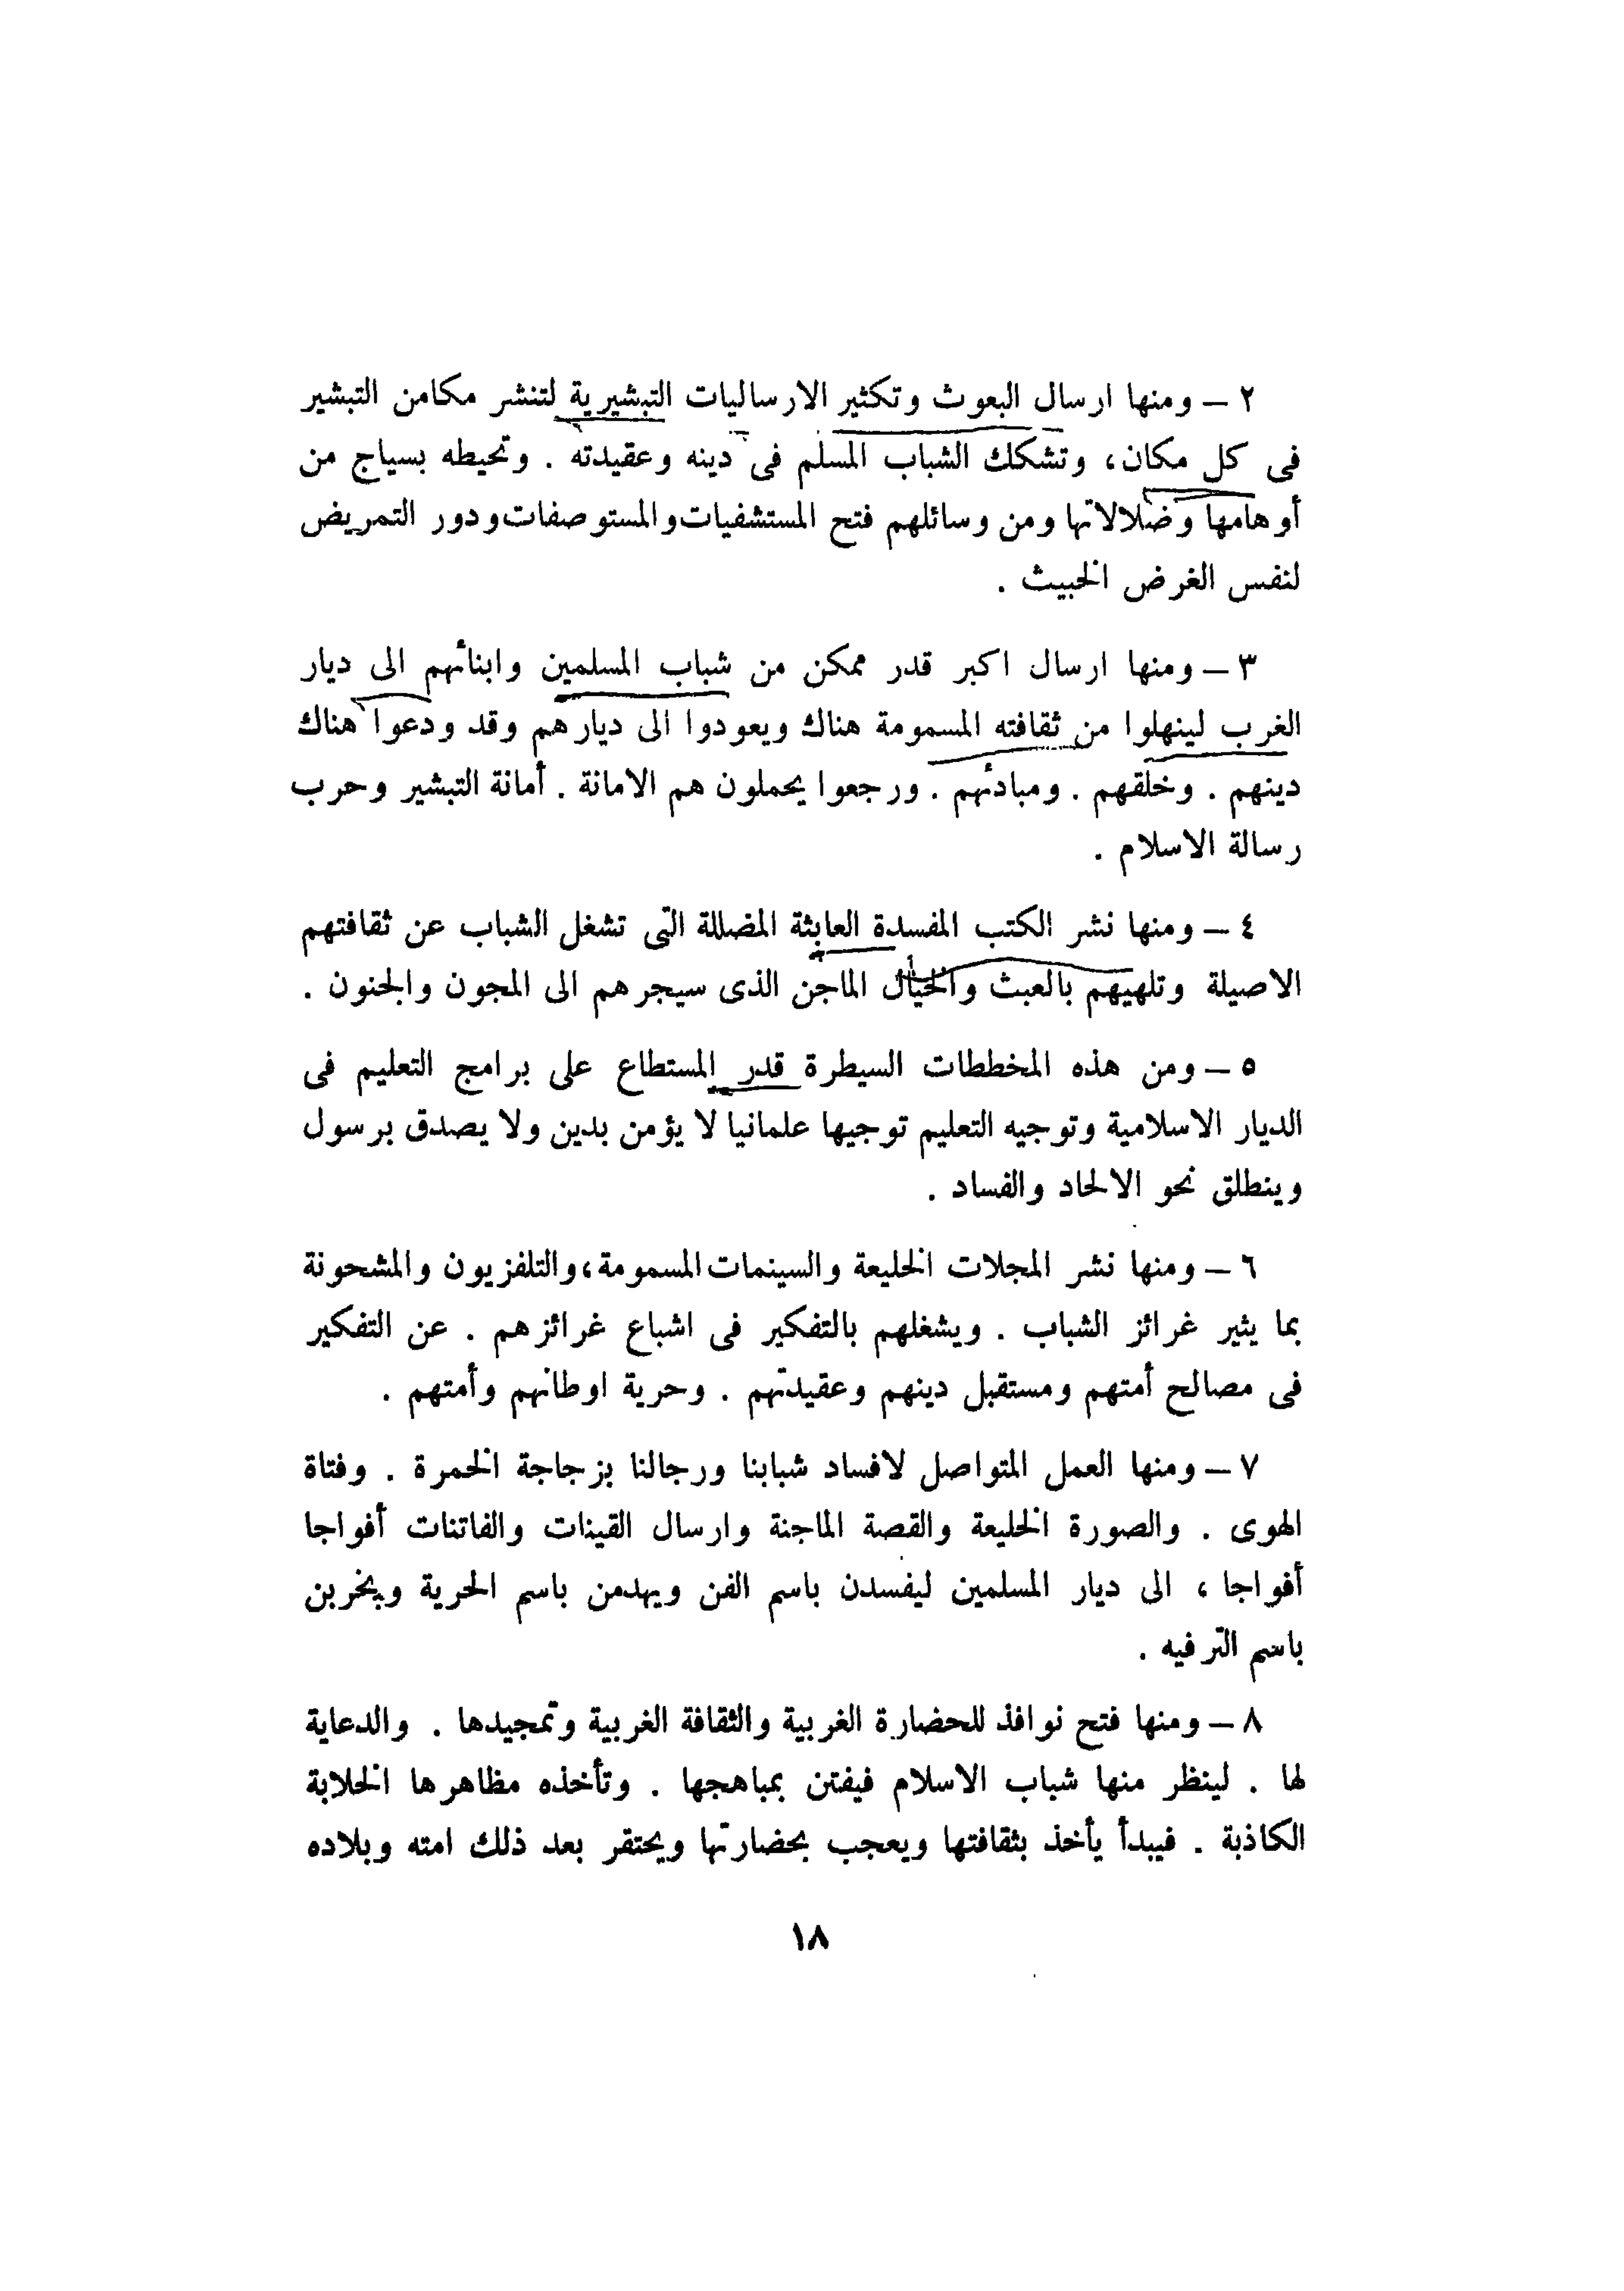 ٢ – ومنها ارسال البعوث وتكثير الارساليات التبشيرية لتنشر مكامن التبشير
فى كل مكان، وتشكك الشباب المسلم فى دينه وعقيدته . وتحيطه بسياج من
أوهامها وضلالاتها ومن وسائلهم فتح المستشفيات والمستوصفات ودور التمريض
لنفس الغرض الخبيث .
٣ – ومنها ارسال اكبر قدر ممكن من شباب المسلمين وابنائهم الى ديار
الغرب لينهلوا من ثقافته المسمومة هناك ويعودوا الى ديارهم وقد ودعوا هناك
دينهم . وخلقهم . ومبادئهم . ورجعوا يحملون هم الامانة . أمانة التبشير وحرب
رسالة الاسلام .
٤ – ومنها نشر الكتب المفسدة العابثة المضللة التى تشغل الشباب عن ثقافتهم
الاصيلة وتلهيهم بالعبث والخيال الماجن الذى سيجرهم الى المجون والجنون .
٥ – ومن هذه المخططات السيطرة قدر المستطاع على برامج التعليم فى
الديار الاسلامية وتوجيه التعليم توجيها علمانيا لا يؤمن بدين ولا يصدق برسول
وينطلق نحو الالحاد والفساد .
٦ – ومنها نشر المجلات الخليعة والسينمات المسمومة، والتلفزيون والمشحونة
بما يثير غرائز الشباب . ويشغلهم بالتفكير فى اشباع غرائزهم . عن التفكير
فى مصالح أمتهم ومستقبل دينهم وعقيدتهم . وحرية اوطانهم وأمتهم .
٧ – ومنها العمل المتواصل لافساد شبابنا ورجالنا بزجاجة الخمرة . وفتاة
الهوى . والصورة الخليعة والقصة الماجنة وارسال القينات والفاتنات أفواجا
أفواجا ، الى ديار المسلمين ليفسدن باسم الفن ويهدمن باسم الحرية ويخربن
باسم الترفيه .
٨ – ومنها فتح نوافذ للحضارة الغربية والثقافة الغربية وتمجيدها . والدعاية
لها . لينظر منها شباب الاسلام فيفتن بمباهجها . وتأخذه مظاهرها الخلابة
الكاذبة . فيبدأ يأخذ بثقافتها ويعجب بحضارتها ويحتقر بعد ذلك امته وبلاده
١٨